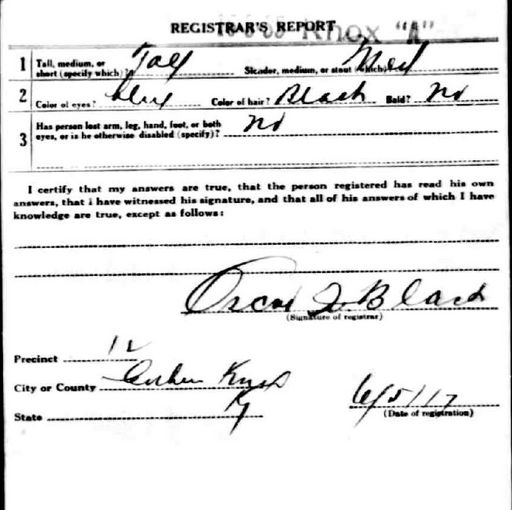 REGISTRAR'S REPORT Knox "A"
1 Tall, medium, or short (specify which)? Tall Slender, medium, or stout (which)? Med
2 Color of eyes? Blue Color of hair? Black Bald? No
3 Has person lost arm, leg, hand, foot, or both
eyes, or is he otherwise disabled (specify)? No
I certify that my answers are true, that the person registered has read his own
answers, that I have witnessed his signature, and that all of his answers of which I have
knowledge are true, except as follows:
Oscar Black
(Signature of registrar)
Precinct 12
City or County
State Ky
6/5/17
(Date of registration)